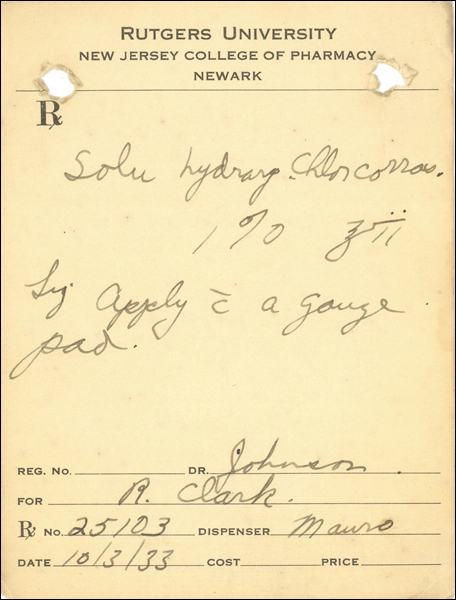 RUTGERS UNIVERSITY
NEW JERSEY COLLEGE OF PHARMACY
NEWARK
℞
Solu hydrarg. Chlor corros.
1% ℥ii
Sig Apply c̄ a gauze
pad.
REG. NO. DR. Johnson
FOR R. Clark.
℞ NO. 25103 DISPENSER Mauro
DATE 10/3/33 COST PRICE